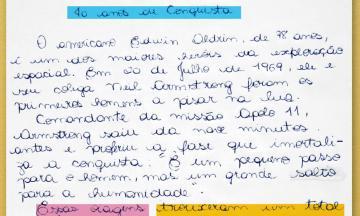 40 anos de Conquista
O americano Edwin Aldrin, de 78 anos,
é um dos maiores heróis da exploração
espacial. Em 20 de julho de 1969, ele e
seu colega Neil Armstrong foram os
primeiros homens a pisar na lua.
Comandante da missão Apolo 11,
Armstrong saiu da nave minutos
antes e proferiu a frase que imortali-
za a conquista: "É um pequeno passo
para o homem, mas um grande salto
para a humanidade".
Essas viagens trouxeram um total